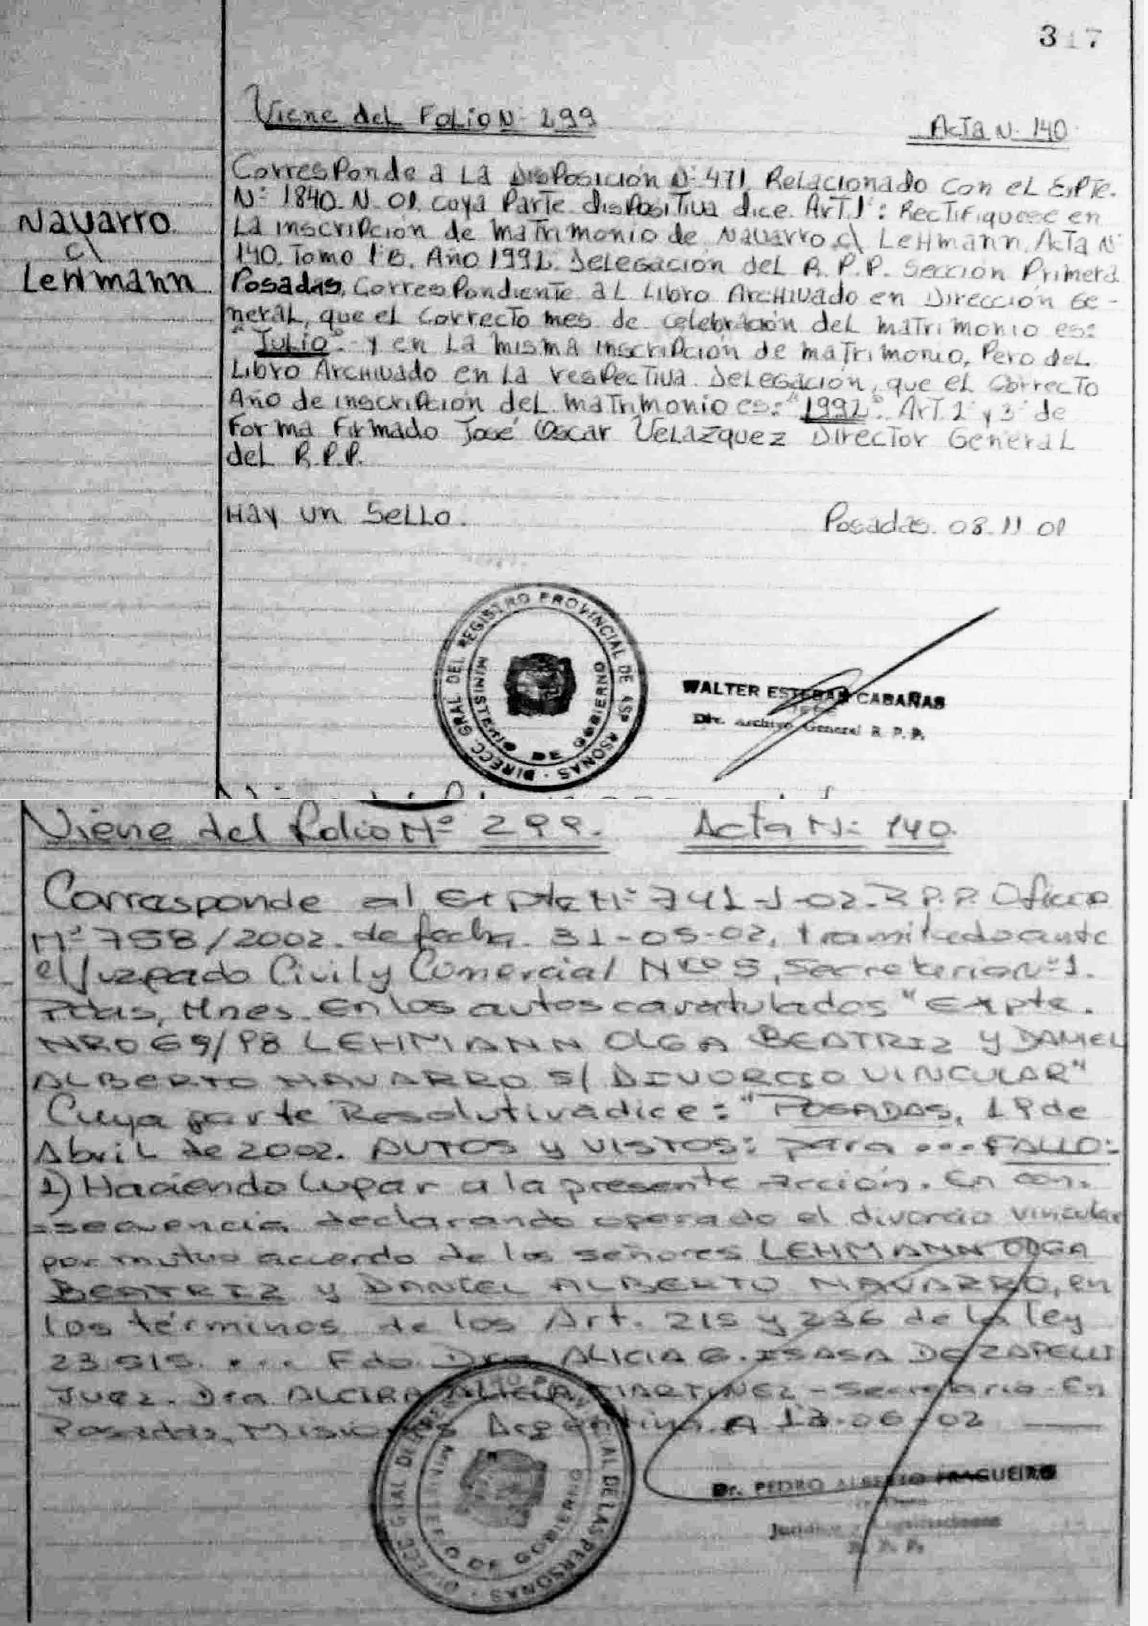 317
Viene del Folio N: 299
Acta N: 140
Navarro
c\
Lehmann
Corresponde a La Disposición N: 471, Relacionado con el ExPte.
N: 1840. N. 01. cuya Parte dispositiva dice. Art. 1°: Rectifiquese en
La inscripcion de matrimonio de Navarro c\ Lehmann. Acta N:
140. Tomo 1°B. Año 1992. Delegacion del R.P.P. Sección Primera
Posadas, Correspondiente al Libro Archivado en Dirección Ge-
neral, que el Correcto mes de celebración del matrimonio es:
"Julio". y en La misma inscripción de matrimonio, Pero del
Libro Archivado en La respectiva Delegación, que el Correcto
Año de inscripcion del matrimonio es: "1992". Art. 2° y 3° de
Forma Firmado José Oscar Velazquez Director General
del R.P.P.
Hay un Sello.
Posadas. 08.11 01
DIRECC GRAL DEL REGISTRO PROVINCIAL DE
MINISTERIO DE GOBIERNO
WALTER ESTEBAN CABAÑAS
Jefe
Div. Archivo General R. P. P.
Viene del folio N° 299.
Acta N: 140.
Corresponde al Expte N° 741-J-02-R.P.P. Oficio
N° 758/2002. de fecha 31-05-02, tramitado ante
el Juzgado Civil y Comercial Nro 5, Secretaria N° 1.
Pdas, Mnes. En los autos caratulados "Expte.
NRO 69/98 LEHMANN OLGA BEATRIZ y DANIEL
ALBERTO NAVARRO S/ DIVORCIO VINCULAR"
Cuya parte Resolutiva dice: "POSADAS, 19 de
Abril de 2002. AUTOS y VISTOS: para ... FALLO:
1) Haciendo lugar a la presente acción. En con-
=secuencia declarando operado el divorcio vincular
por mutuo acuerdo de los señores LEHMANN OLGA
BEATRIZ y DANIEL ALBERTO NAVARRO, en
los términos de los Art. 215 y 236 de la ley
23.515. ... Fdo. Dra ALICIA G. ISASA DE ZAPELLI
Juez. Dra ALCIRA ALICIA MARTINEZ - Secretaria. En
Posadas, Misiones Argentina. A 13-06-02
DIRECC GRAL DEL REGISTRO PROVINCIAL DE LAS PERSONAS
MINISTERIO DE GOBIERNO
Dr. PEDRO ALBERTO FRAGUEIRO
R. P. P.